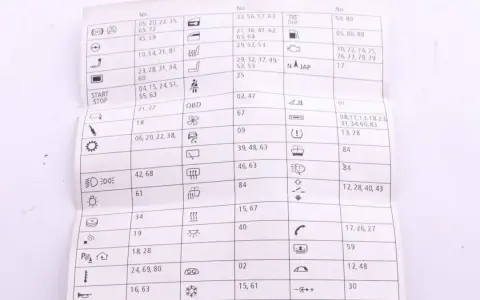 No No
05, 20, 22, 35, 33, 50, 51, 63 50, 80
65, 72
45, 59 21, 36, 41, 62, 05, 86, 88
63, 64
10, 54, 71, 81 29, 52, 53 10, 72, 74, 75,
76, 77, 78, 79
23, 28, 31, 34, 29, 32, 37, 49, N JAP 17
60 52, 53
START 04, 15, 24, 51, 25
STOP 55, 63
21, 27 OBD 02, 47 01
18 67
31, 34, 60, 83
06, 20, 22, 38, 09 13, 28
39, 48, 63 84
42, 68 46, 63 84
61 84 12, 28, 40, 43
34 15, 67
19 40 17, 26, 27
18, 28 59
24, 69, 80 02 12, 48
16, 63 15, 61 30